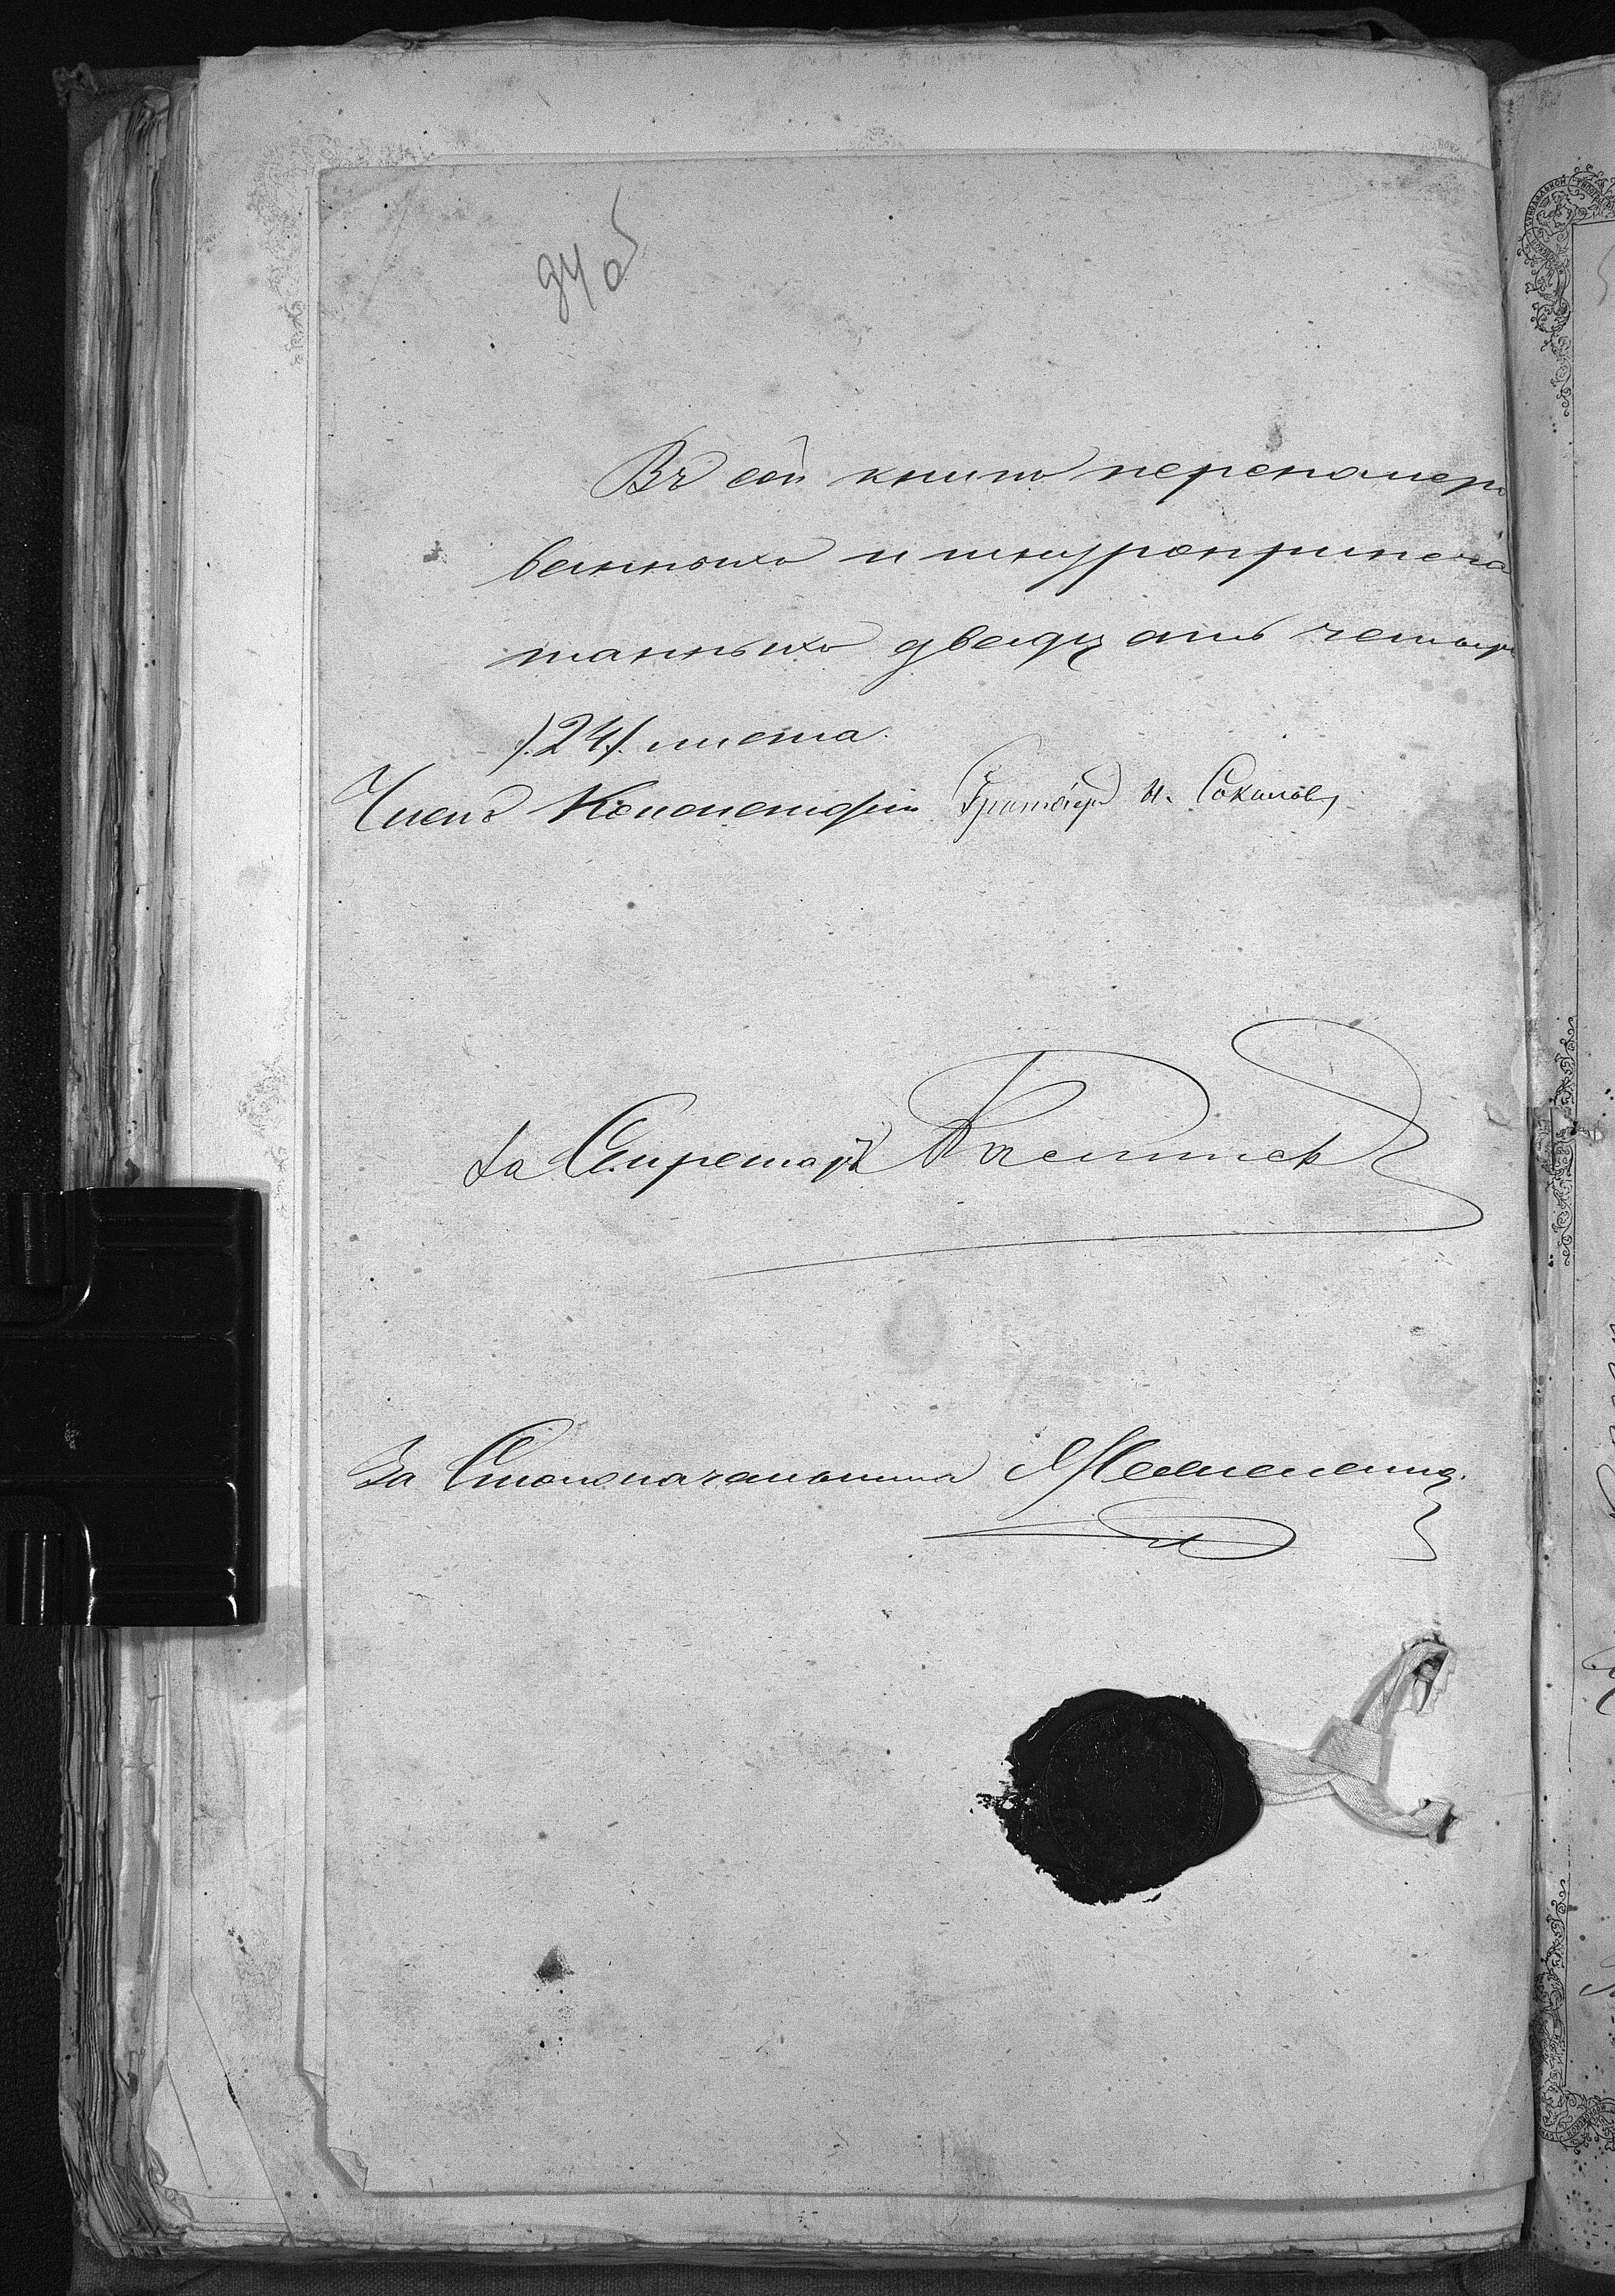 94 об
Въ сей книгѣ перенумеро
ванныхъ и шнуроприпеча
танныхъ двадцать четыре
/.24./ листа.
Членъ Консисторіи И. Соколовъ
За Секретаря
За Столоначальника